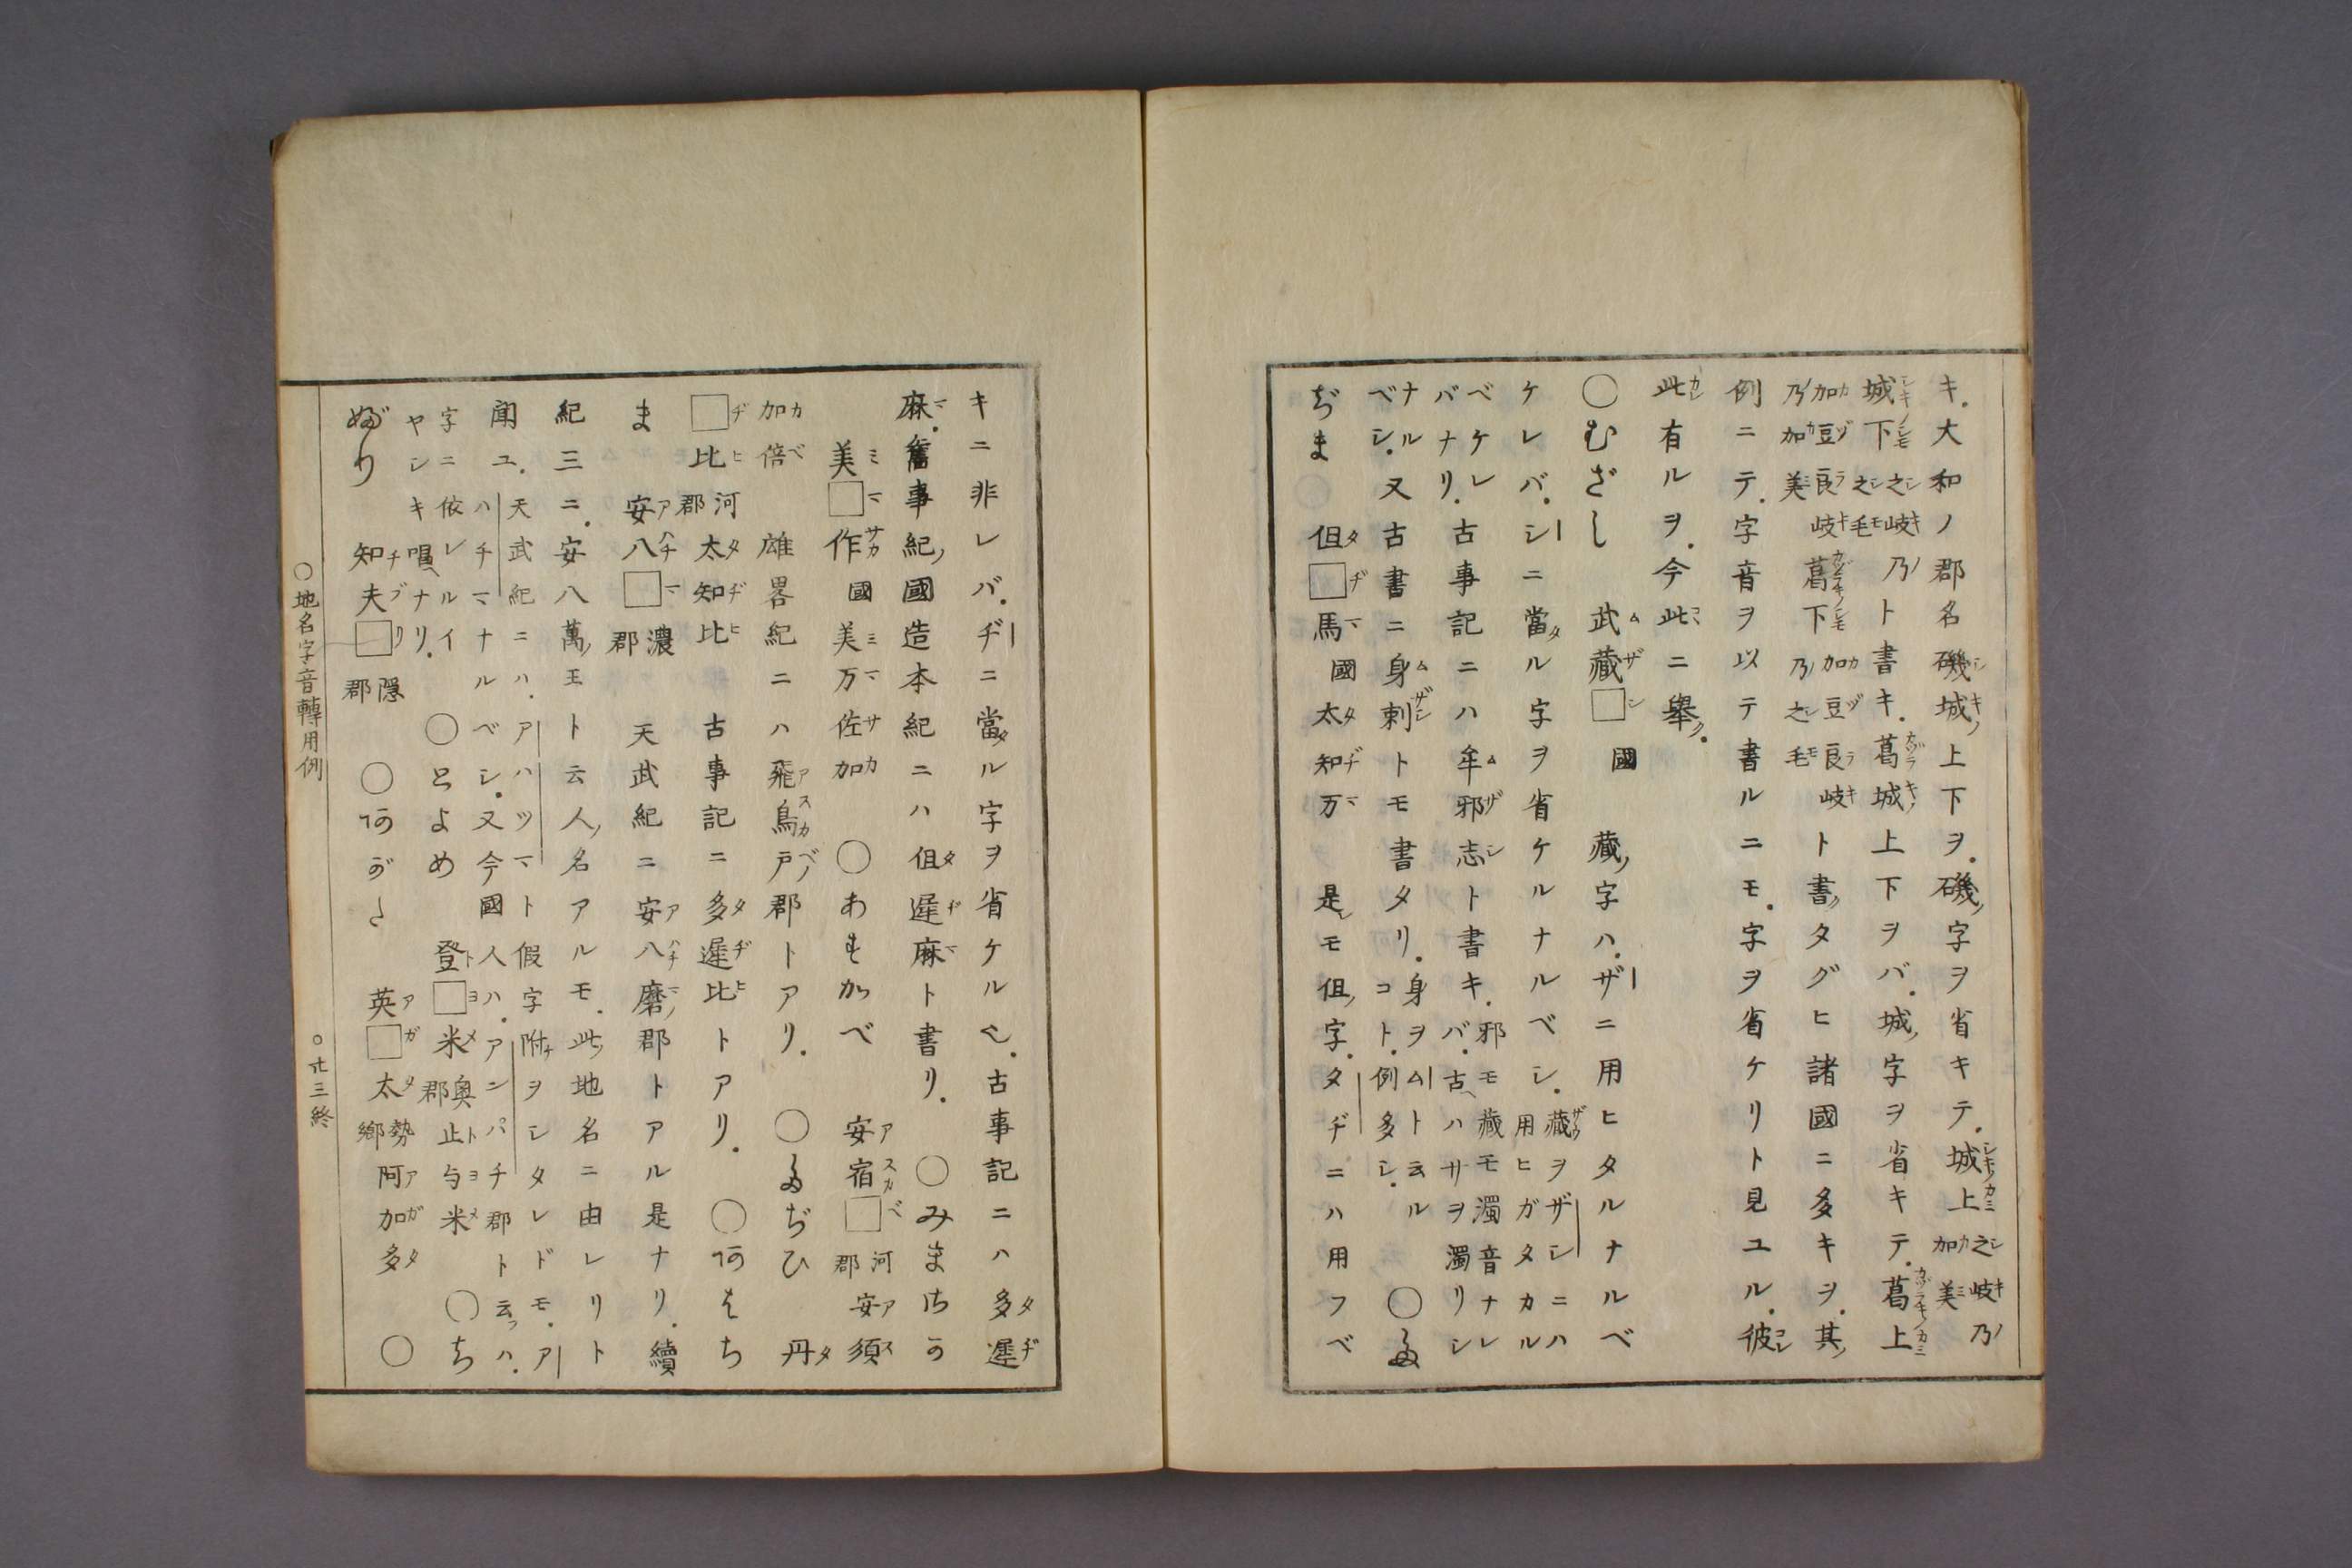 キ大和ノ郡名磯城上下ヲ磯字ヲ省キテ城上之岐乃加美
城下之岐乃之毛ト書キ葛城上下ヲバ城字ヲ省キテ葛上
加豆良岐乃加美葛下加豆良岐乃之毛ト書タグヒ諸國ニ多キヲ其
例ニテ字音ヲ以テ書ルニモ字ヲ省ケリト見ユル彼
此有ルヲ今此ニ擧
〇むざし 武藏□國 藏字ハザニ用ヒタルナルベ
ケレバシニ當ル字ヲ省ケルナルベシ藏ヲザシニハ用ヒガタカル
ベケレバナリ古事記ニハ牟邪志ト書キ邪モ藏モ濁音ナレバ古ハサヲ濁リシ
ナルベシ又古書ニ身刺トモ書タリ身ヲムト云ルコト例多シ 〇た
ぢま 但□馬國太知万 是モ但字タヂニハ用フベ
キニ非レバヂニ當ル字ヲ省ケルヘ古事記ニハ多遲
麻舊事紀國造本紀ニハ但遲麻ト書リ 〇みまさか
美□作國美万佐加 〇あすかべ 安宿□河郡安須
加倍 雄畧紀ニハ飛鳥戸郡トアリ 〇たぢひ 丹
□比河郡太知比 古事記ニ多遲比トアリ 〇あはち
ま 安八□濃郡 天武紀ニ安八磨郡トアル是ナリ續
紀三ニ安八萬王ト云人名アルモ此地名ニ由レリト
聞ユ天武紀ニハアハツマト假字附ヲシタレドモアハチマナルベシ又今國人ハアンパチ郡ト云ハ
字ニ依レルイヤシキ唱ナリ 〇とよめ 登□米奥郡止与米 〇ち
ぶり 知夫□隠郡 〇あがた 英□太勢鄉阿加多 〇
〇地名字音轉用例 〇廿三終